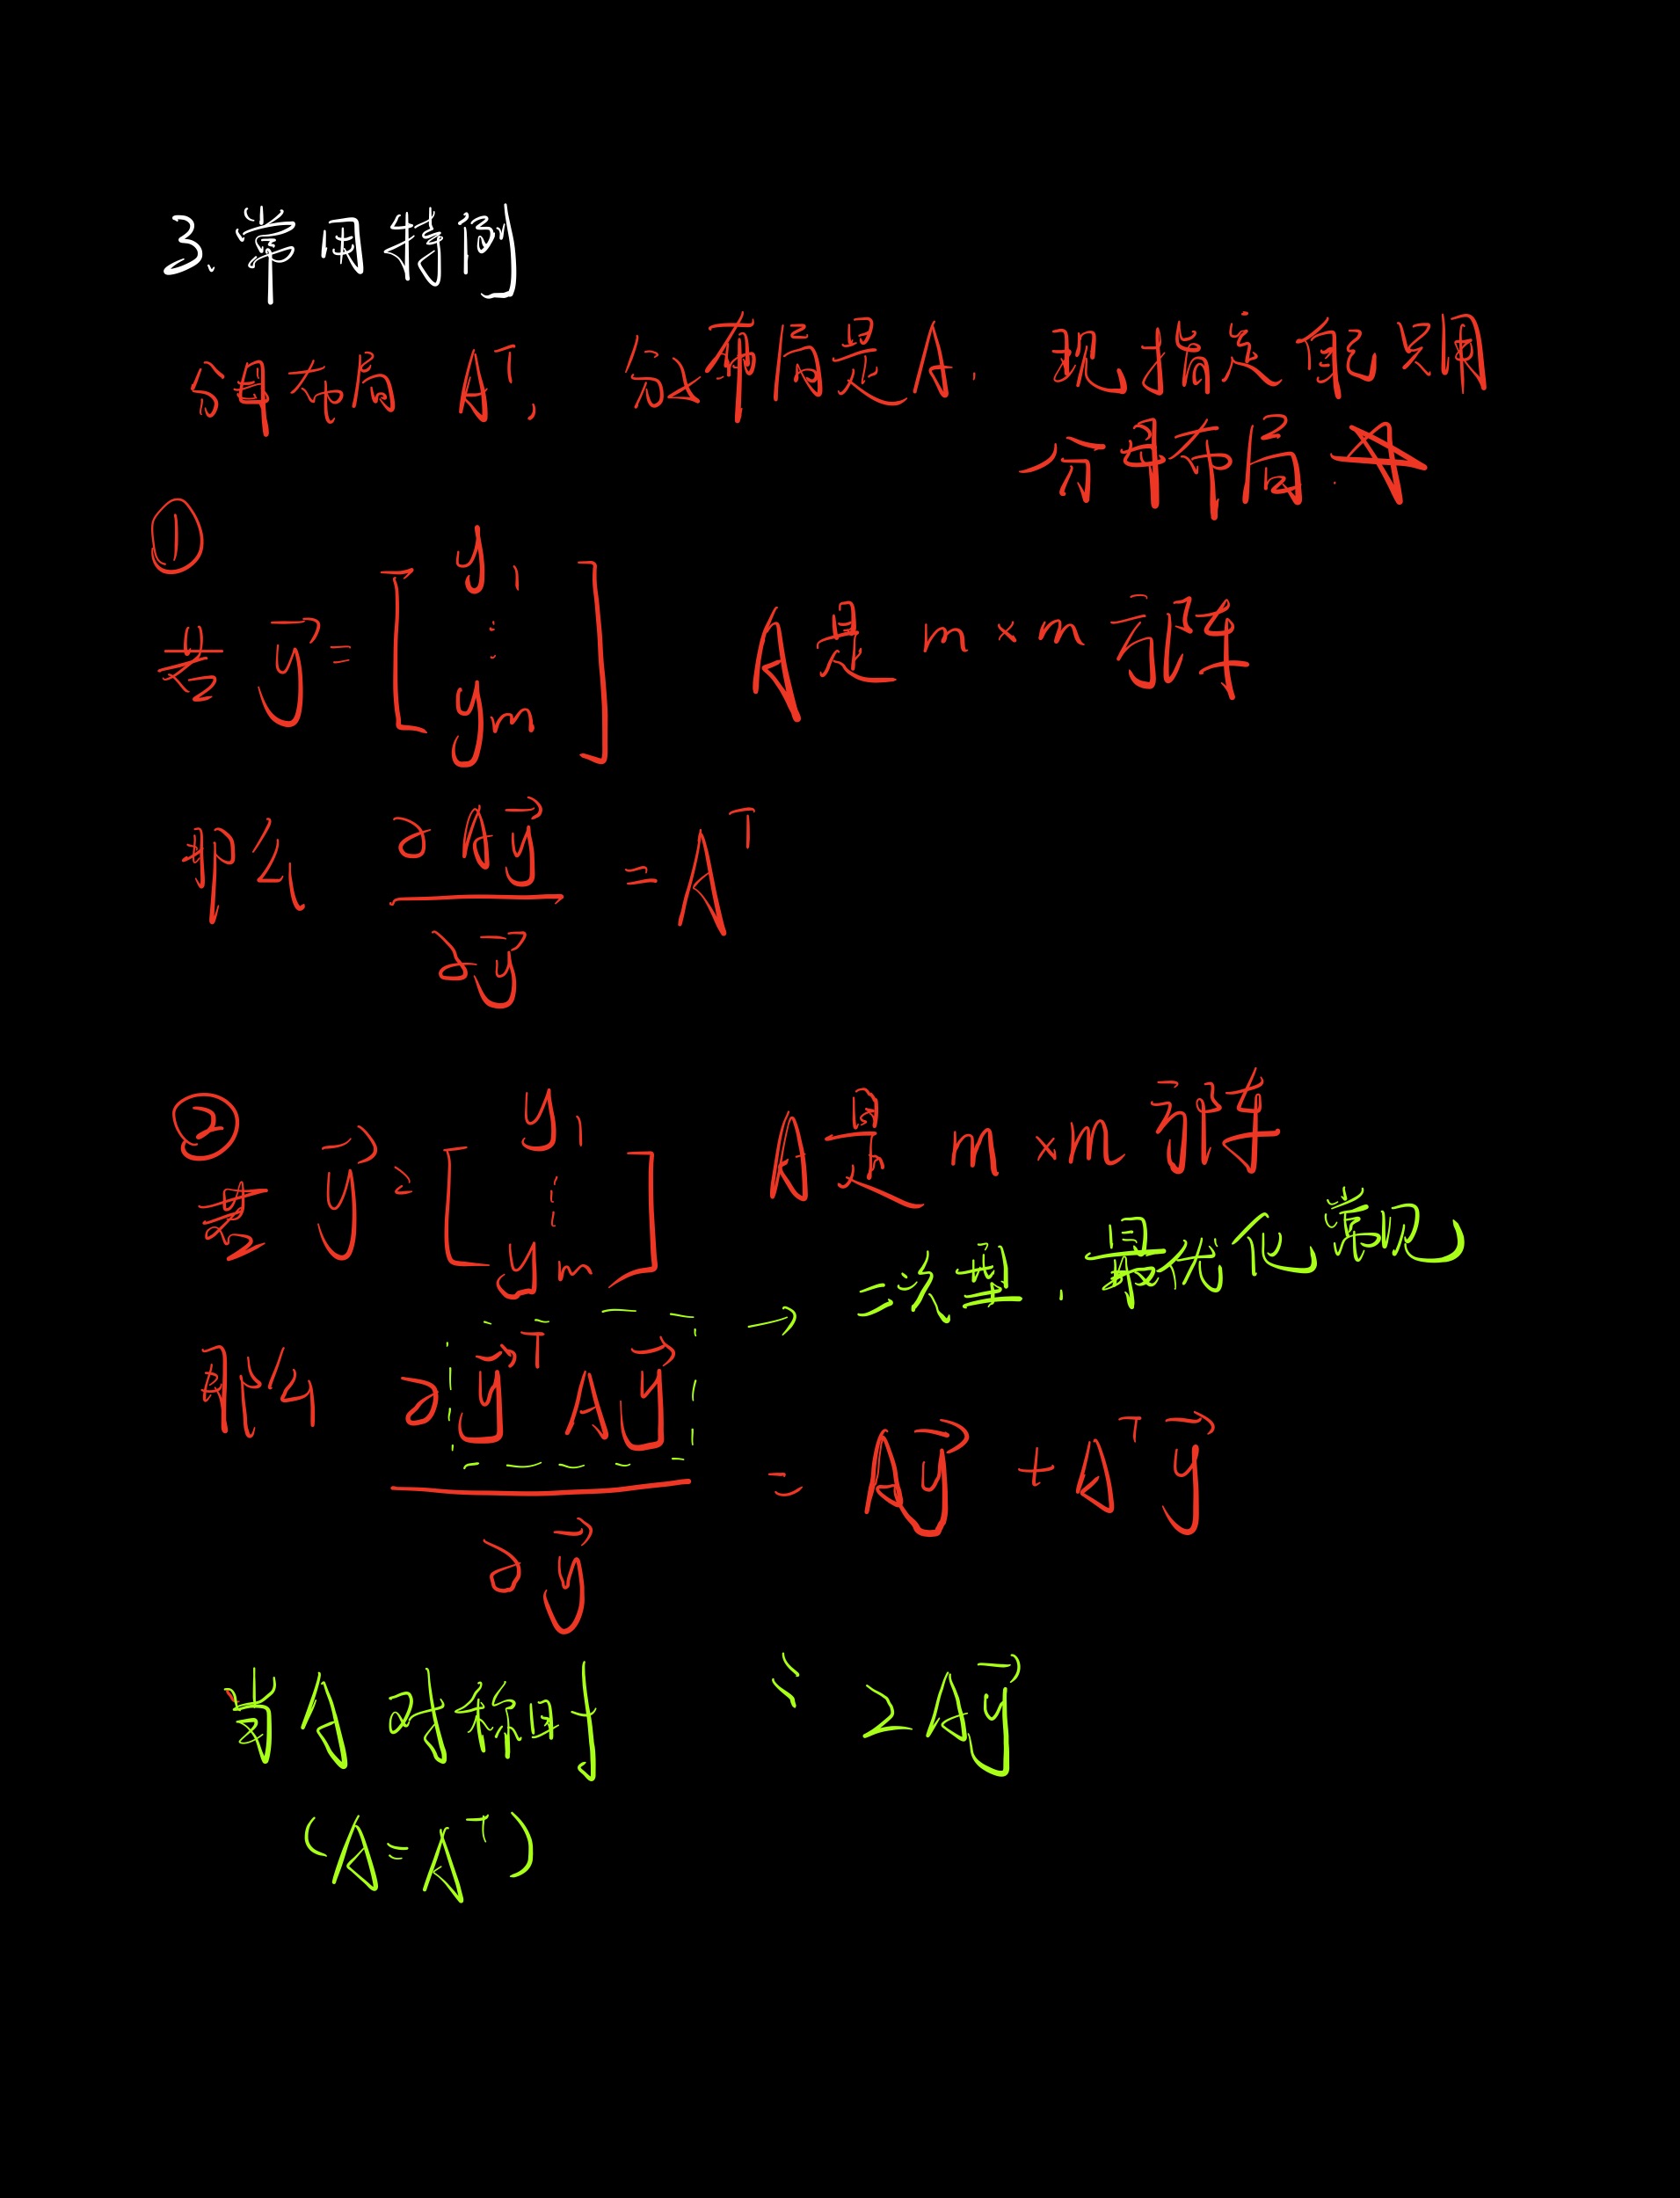 3.常用特例
分母布局 Aᵀ, 分子布局是A. 现指定自己只用
分母布局.☆
①
若 y⃗ = [ y₁ ⋮ yₘ ] A是 m×m 方阵
那么 ∂Ay⃗ / ∂y⃗ = Aᵀ
②
若 y⃗ = [ y₁ ⋮ yₘ ] A是 m×m 方阵
→ 二次型. 最优化常见
那么 ∂y⃗ᵀAy⃗ / ∂y⃗ = Ay⃗ + Aᵀy⃗
当A对称时 2Ay⃗
(A=Aᵀ)